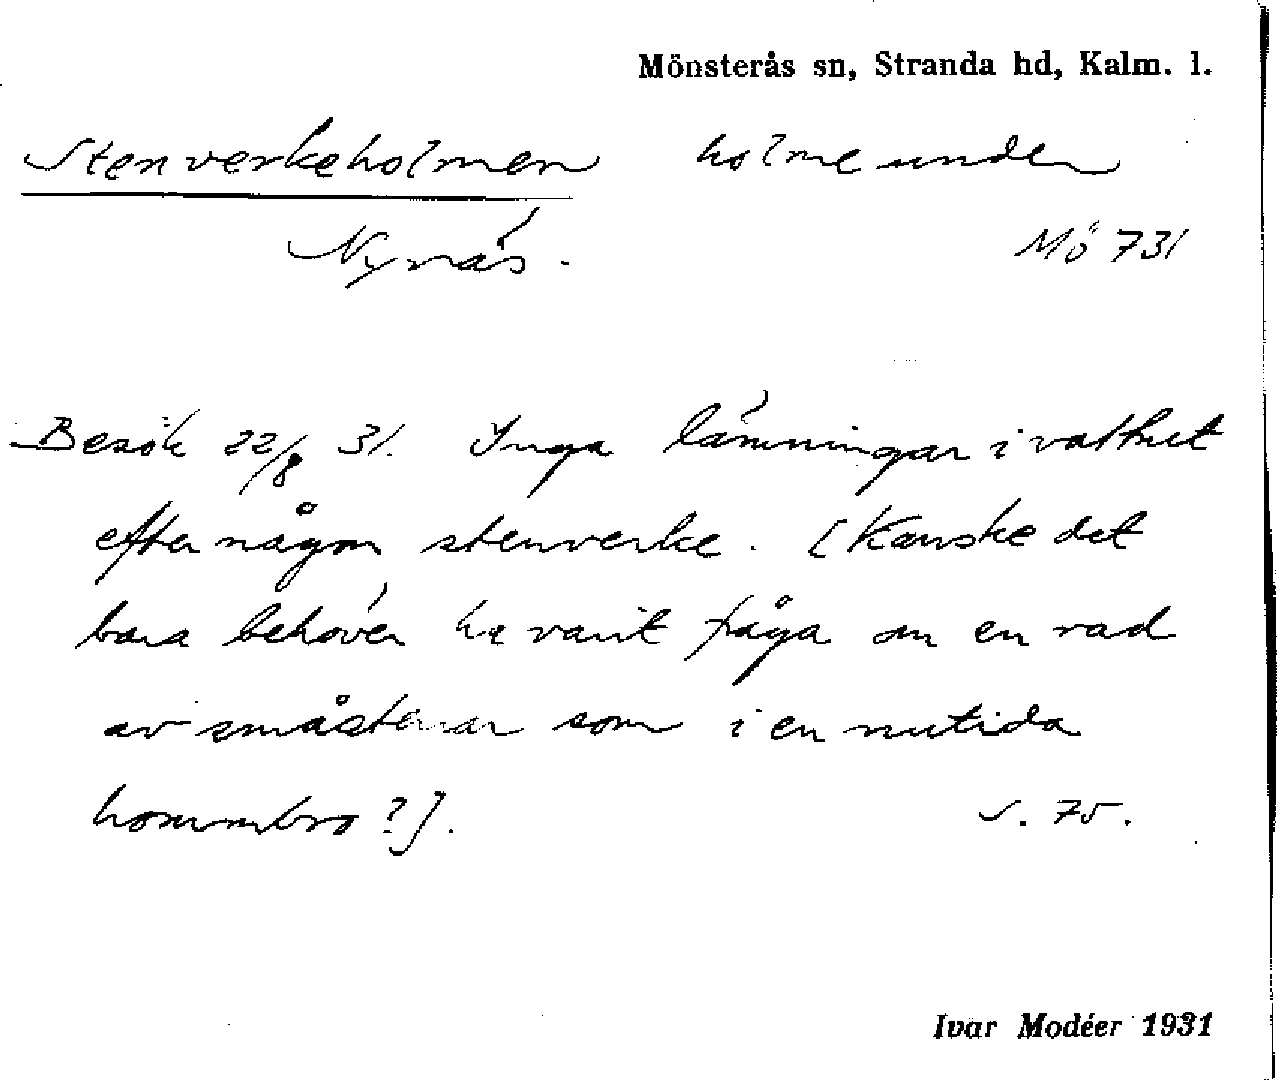 Mönsterås sn, Stranda hd, Kalm. l.
Stenverkeholmen holme under
Nynäs. Mö 731
Besök 22/8 31. Inga lämningar i vattnet
efter någon stenverke. [Kanske det
bara behöver ha varit fråga om en rad
av småstenar som i en nutida
hommbro?]. s. 75.
Ivar Modéer 1931